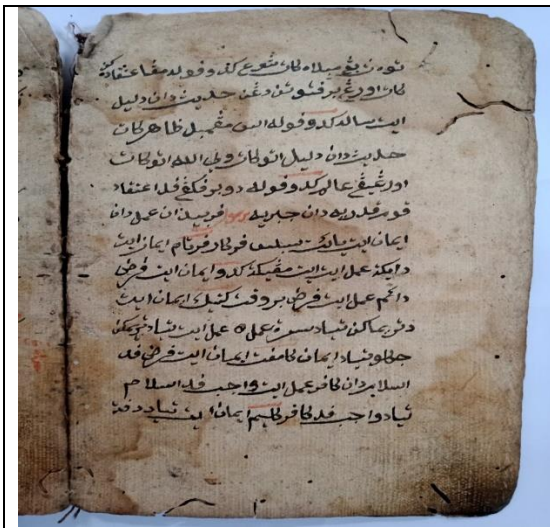 توهن يڠ مپله كان متبوع كدوفوله مڠاعتقادكن
كات اورڠ يڠ برفڠوتن دڠن حديث دان دليل
ايت سالە كدوفوله امس مڠمبل ظاهر كات
حديث دان دليل اتو كات ولي الله اتو كات
اورڠ يڠ عالم كدوفوله دو برفڬڠ فد اعتقاد
قوم قدريه دان جبريه برمول فربيدان عمل دان
ايمان ايت ايت سبلس فركار فرتام ايمان ايت
دايكة عمل ايت ايت مڠيكة كدو ايمان ايت فرض
دائم عمل ايت فرض بروقت كتيڬ ايمان ايت
دتريماكن تياد سرة عمل عمل ايت تياد دتريمكن
جكلو تياد ايمان كامفت ايمان ايت فرض فد
اسلام دان كافر عمل ايت واجب فد اسلام
تياد واجب فد كافر كليم ايمان ايت تياد دڤت